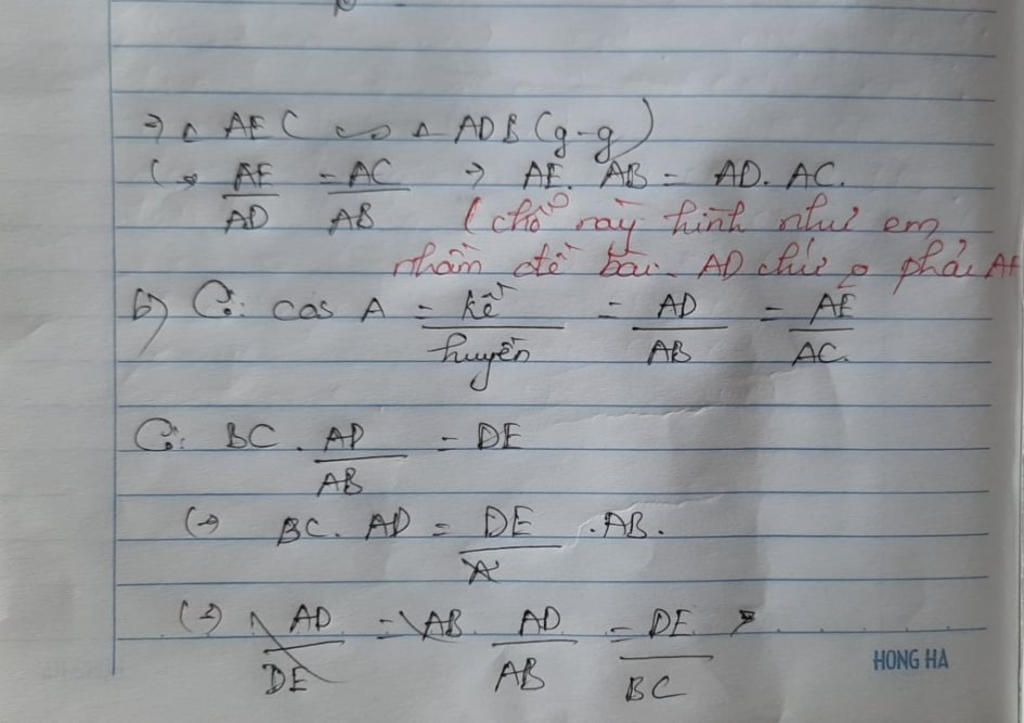 → Δ AEC ∽ Δ ADB (g-g)
(→ AE/AD = AC/AB → AE. AB = AD. AC.
(chỗ này hình như em
nhầm đề bài. AD chứ o phải AE
b) Có: cos A = kề/huyền = AD/AB = AE/AC.
Có: BC . AD/AB = DE
(→ BC. AD = DE .AB.
(→) AD/DE = AB AD/AB = DE/BC
HONG HA